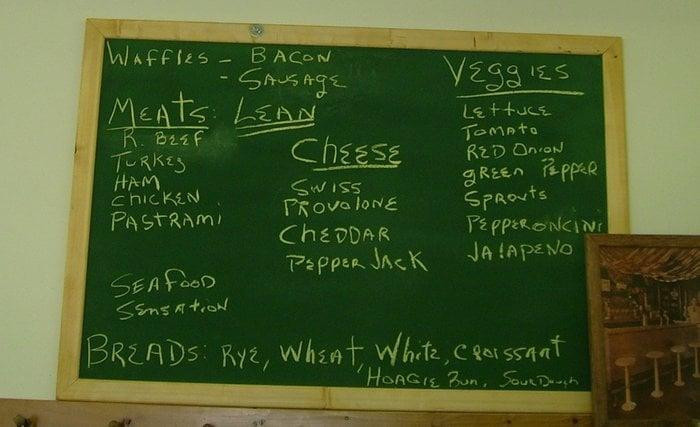 Waffles - BACON
- SAUSAGE
MEATS: LEAN
R. BEEF
TURKEY
HAM
CHICKEN
PASTRAMI
SEAFOOD
SENSATION
CHEESE
SWISS
PROVOLONE
CHEDDAR
PEPPER JACK
VEGGIES
LETTUCE
TOMATO
RED ONION
GREEN PEPPER
SPROUTS
PEPPERONCINI
JALAPENO
BREADS: RYE, WHEAT, WHITE, CROISSANT
HOAGIE BUN, SOURDOUGH